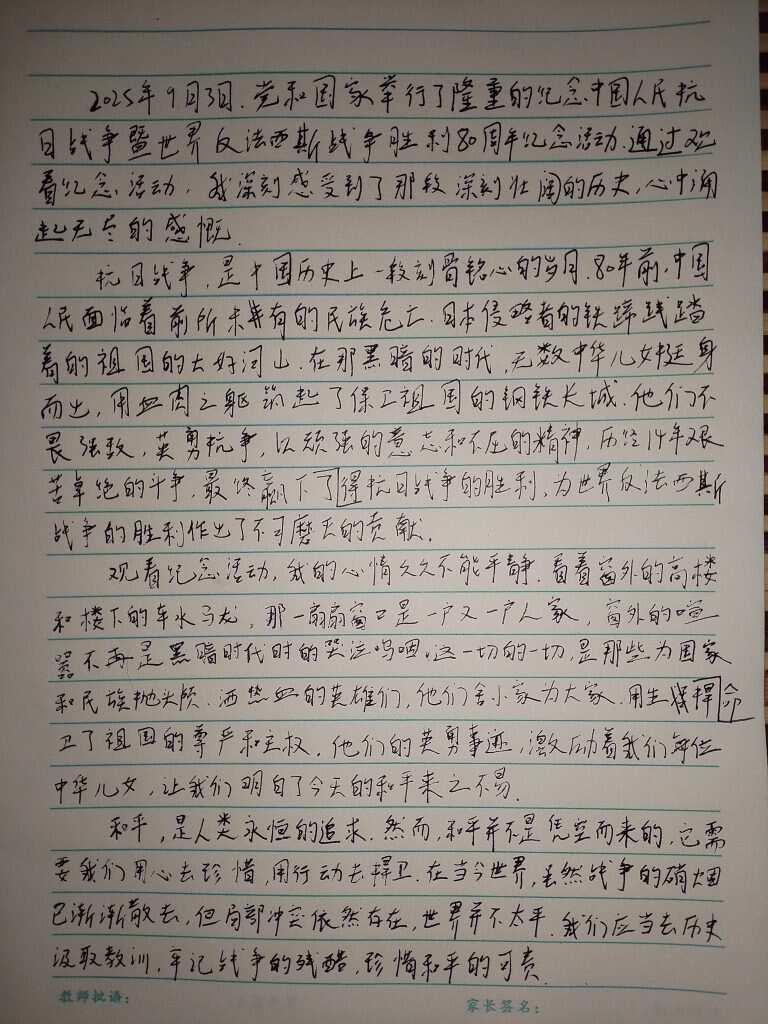 2025年9月3日.党和国家举行了隆重的纪念中国人民抗
日战争暨世界反法西斯战争胜利80周年纪念活动.通过观
看纪念活动,我深刻感受到了那段深刻壮阔的历史,心中涌
起无尽的感慨.
抗日战争,是中国历史上一段刻骨铭心的岁月.80年前,中国
人民面临着前所未有的民族危亡.日本侵略者的铁蹄践踏
着的祖国的大好河山.在那黑暗的时代,无数中华儿女挺身
而出,用血肉之躯筑起了保卫祖国的钢铁长城.他们不
畏强敌,英勇抗争,以顽强的意志和不屈的精神,历经14年艰
苦卓绝的斗争,最终赢下了得抗日战争的胜利,为世界反法西斯
战争的胜利作出了不可磨灭的贡献.
观看纪念活动,我的心情久久不能平静.看着窗外的高楼
和楼下的车水马龙,那一扇扇窗口是一户又一户人家,窗外的喧
嚣不再是黑暗时代时的哭泣呜咽,这一切的一切,是那些为国家
和民族抛头颅.洒热血的英雄们,他们舍小家为大家.用生命捍
卫了祖国的尊严和主权.他们的英勇事迹,激励着我们每位
中华儿女,让我们明白了今天的和平来之不易.
和平,是人类永恒的追求.然而,和平并不是凭空而来的,它需
要我们用心去珍惜,用行动去捍卫.在当今世界,虽然战争的硝烟
已渐渐散去,但局部冲突依然存在,世界并不太平.我们应当去历史
汲取教训,牢记战争的残酷,珍惜和平的可贵.
教师批语:
家长签名: